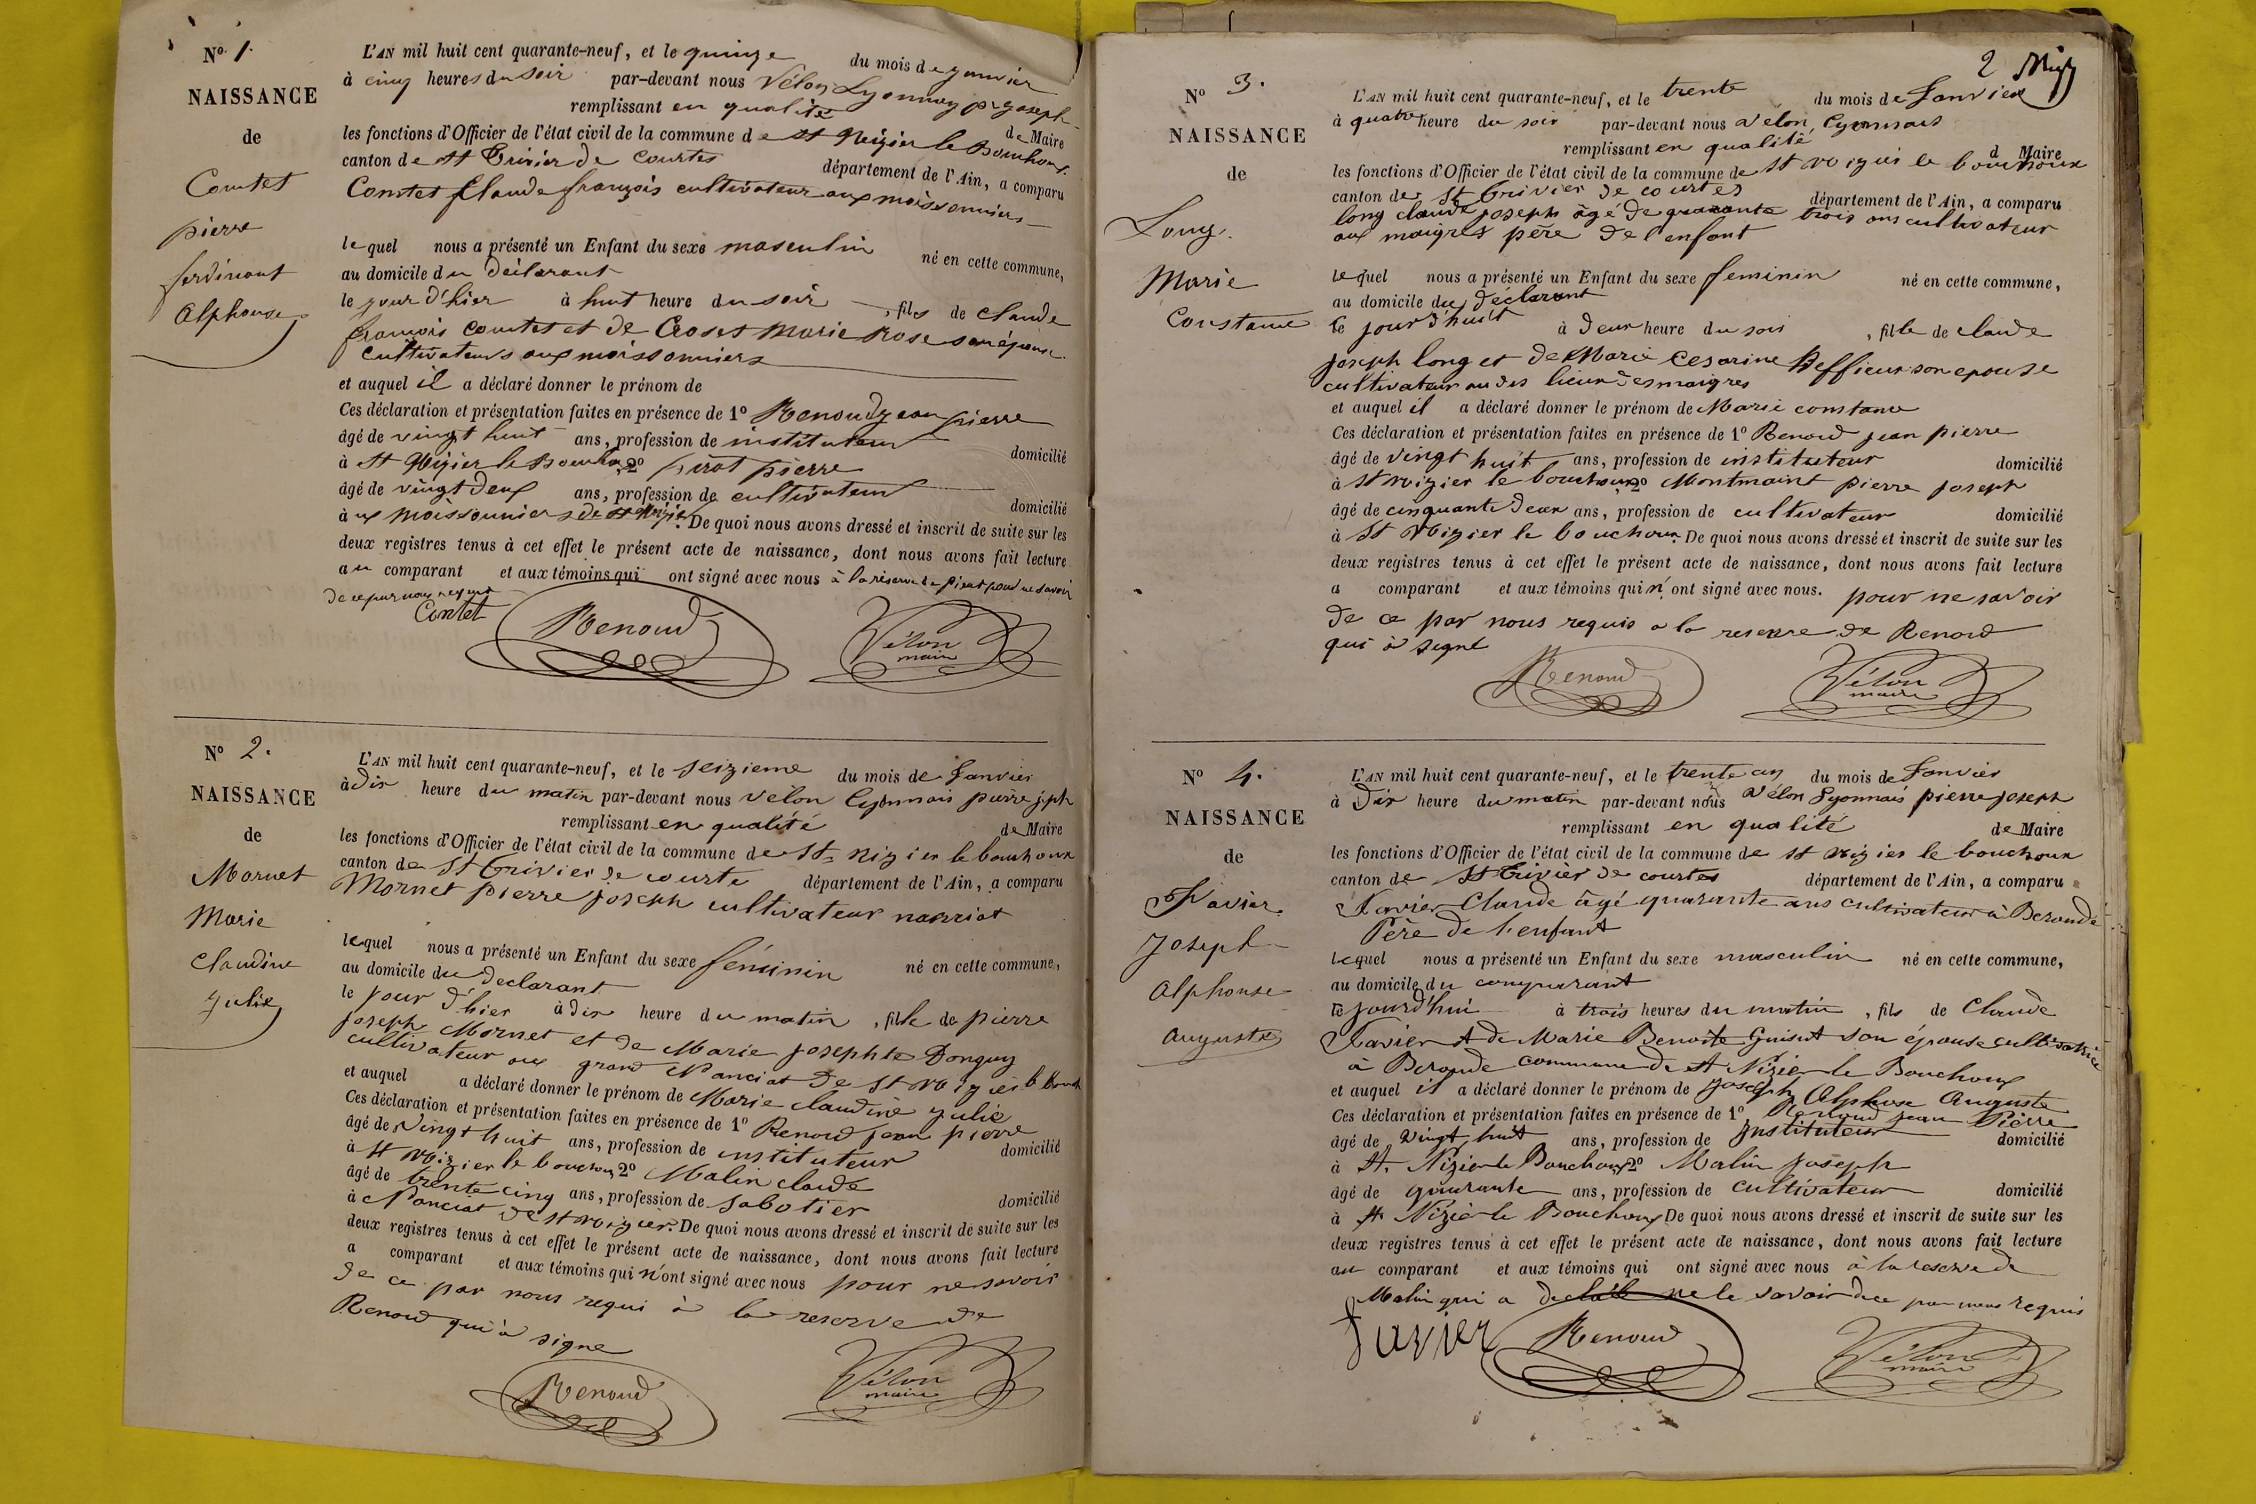 N° 1.
NAISSANCE
de
Comtet
pierre
ferdinant
Alphonse
L'AN mil huit cent quarante-neuf, et le quinze du mois de janvier
à cinq heures du soir par-devant nous Vélon Lyonnay pr joseph
remplissant en qualité de Maire
les fonctions d'Officier de l'état civil de la commune de st Nizier le Bouhoux
canton de st Trivier de courtes département de l'Ain, a comparu
Comtet Claude françois cultivateur aux moissonniers
lequel nous a présenté un Enfant du sexe masculin né en cette commune,
au domicile du déclarant
le jour d'hier à huit heure du soir, fils de claude
françois comtet et de Croset Marie Rose son épouse
cultivateurs aux moissonniers
et auquel il a déclaré donner le prénom de
Ces déclaration et présentation faites en présence de 1° Renoud jean pierre
âgé de vingt huit ans, profession de instituteur domicilié
à st Nizier le Bouhoux 2° pirat pierre
âgé de vingt deux ans, profession de cultivateur domicilié
à ux moissonniers de st Nizier. De quoi nous avons dressé et inscrit de suite sur les
deux registres tenus à cet effet le présent acte de naissance, dont nous avons fait lecture
au comparant et aux témoins qui ont signé avec nous à la réserve de pirat pour ne savoir
de ce par nous requis
Comtet Renoud Vélon
maire
N° 2.
NAISSANCE
de
Mornet
Marie
claudine
Julie
L'AN mil huit cent quarante-neuf, et le seizieme du mois de Janvier
à dix heure du matin par-devant nous vélon lyonnais pierre jph
remplissant en qualité de Maire
les fonctions d'Officier de l'état civil de la commune de St Nizier le bouchoux
canton de St Trivier de courte département de l'Ain, a comparu
Mornet pierre joseph cultivateur nanciat
lequel nous a présenté un Enfant du sexe féminin né en cette commune,
au domicile du declarant
le jour d'hier à dix heure du matin, fille de pierre
joseph Mornet et de Marie josephte Donguy
cultivateur aux grand Nanciat de St Nizier le Bouch
et auquel a déclaré donner le prénom de Marie claudine julie
Ces déclaration et présentation faites en présence de 1° Renoud jean pierre
âgé de vingt huit ans, profession de instituteur domicilié
à St Nizier le bouchoux 2° Malin claude
âgé de trente cinq ans, profession de sabotier domicilié
à Nanciat de St Nizier. De quoi nous avons dressé et inscrit de suite sur les
deux registres tenus à cet effet le présent acte de naissance, dont nous avons fait lecture
a comparant et aux témoins qui n'ont signé avec nous pour ne savoir
de ce par nous requi à la reserve de
Renoud qui à signe
Renoud Vélon
maire
2
N° 3.
NAISSANCE
de
Long
Marie
Constance
L'AN mil huit cent quarante-neuf, et le trente du mois de Janvier
à quatre heure du soir par-devant nous vélon lyonnais
remplissant en qualité d Maire
les fonctions d'Officier de l'état civil de la commune de St Nizier le bouchoux
canton de St Trivier de courtes département de l'Ain, a comparu
long claude joseph âgé de quarante trois ans cultivateur
aux maigres père de l'enfant
lequel nous a présenté un Enfant du sexe feminin né en cette commune,
au domicile du déclarant
le jour d'huit à deux heure du soir, fille de claude
joseph long et de Marie Cesarine Beffieux son epouse
cultivateur au dis lieux des maigres
et auquel il a déclaré donner le prénom de Marie constance
Ces déclaration et présentation faites en présence de 1° Renoud jean pierre
âgé de vingt huit ans, profession de instituteur domicilié
à St Nizier le bouchoux 2° Montmaint pierre joseph
âgé de cinquante deux ans, profession de cultivateur domicilié
à St Nizier le bouchoux. De quoi nous avons dressé et inscrit de suite sur les
deux registres tenus à cet effet le présent acte de naissance, dont nous avons fait lecture
a comparant et aux témoins qui n'ont signé avec nous. pour ne savoir
de ce par nous requis a la reserve de Renoud
qui à signé
Renoud Vélon
maire
N° 4.
NAISSANCE
de
Favier
Joseph
Alphonse
Auguste
L'AN mil huit cent quarante-neuf, et le trente un du mois de Janvier
à Dix heure du matin par-devant nous Vélon Lyonnais pierre joseph
remplissant en qualité de Maire
les fonctions d'Officier de l'état civil de la commune de st Nizier le bouchoux
canton de St Trivier de courtes département de l'Ain, a comparu
Favier Claude âgé quarante ans cultivateur à Beroude
Père de l'enfant
lequel nous a présenté un Enfant du sexe masculin né en cette commune,
au domicile du comparant
le jourd'hui à trois heures du matin, fils de Claude
Favier et de Marie Benoite Guisut son épouse cultivatrice
à Beroude commune de St Nizier le Bouchoux
et auquel il a déclaré donner le prénom de joseph Alphonse Auguste
Ces déclaration et présentation faites en présence de 1° Renoud jean Pierre
âgé de vingt huit ans, profession de Instituteur domicilié
à St. Nizier le Bouchoux 2° Malin Joseph
âgé de quarante ans, profession de cultivateur domicilié
à St Nizier le Bouchoux De quoi nous avons dressé et inscrit de suite sur les
deux registres tenus à cet effet le présent acte de naissance, dont nous avons fait lecture
au comparant et aux témoins qui ont signé avec nous à la reserve de
Malin qui a declaré ne le savoir de ce par nous requis
favier Renoud Vélon
maire